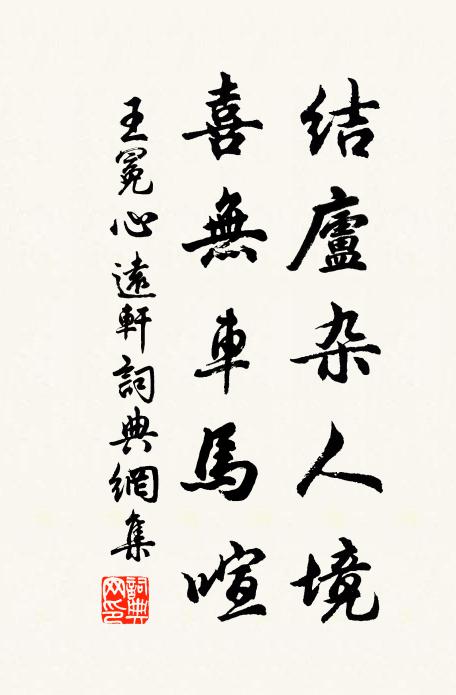 結廬杂人境
喜無車馬喧
王冕心遠軒詞典網集
詞典网印